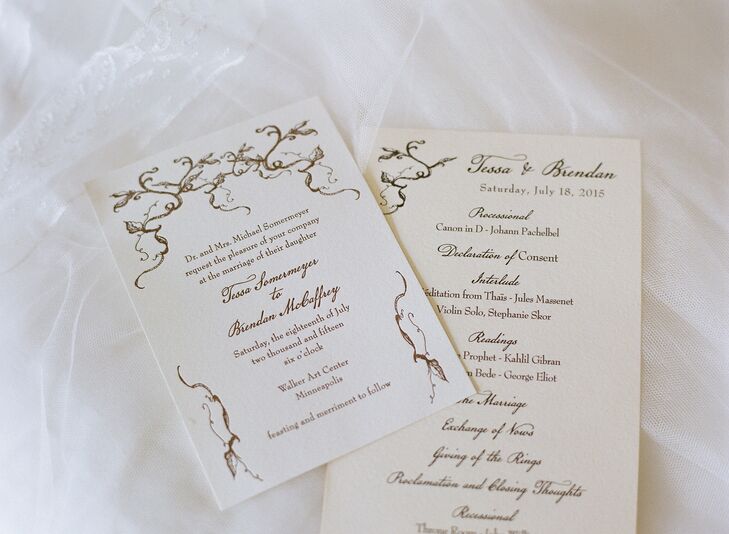 Dr. and Mrs. Michael Somermeyer
request the pleasure of your company
at the marriage of their daughter
Tessa Somermeyer
to
Brendan McCaffrey
Saturday, the eighteenth of July
two thousand and fifteen
six o'clock
Walker Art Center
Minneapolis
feasting and merriment to follow
Tessa & Brendan
Saturday, July 18, 2015
Processional
Canon in D - Johann Pachelbel
Declaration of Consent
Interlude
éditation from Thaïs - Jules Massenet
Violin Solo, Stephanie Skor
Readings
Prophet - Kahlil Gibran
Bede - George Eliot
The Marriage
Exchange of Vows
Giving of the Rings
Proclamation and Closing Thoughts
Recessional
Throne Room - John